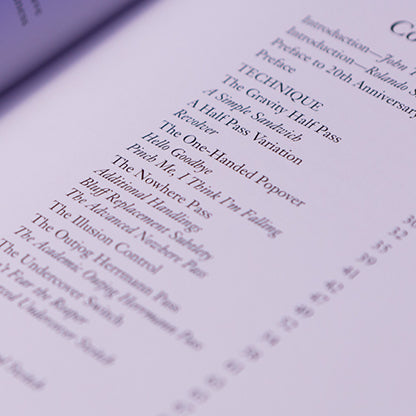 Co
Introduction—John
Introduction—Rolando
Preface to 20th Anniversary
Preface
TECHNIQUE
The Gravity Half Pass
A Simple Sandwich
A Half Pass Variation
Revolver
The One-Handed Popover
Hello Goodbye
Pinch Me, I Think I'm Falling
The Nowhere Pass
Additional Handlings
Bluff Replacement Subtlety
The Advanced Nowhere Pass
The Illusion Control
The Outjog Herrmann Pass
The Academic Outjog Herrmann Pass
The Undercover Switch
Fear the Reaper
Undercover Switch
Switch